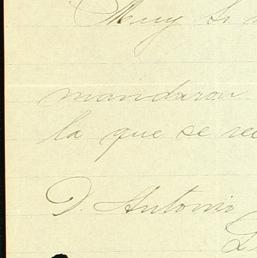 Muy Sr
mandaron
la que se
D. Antonio